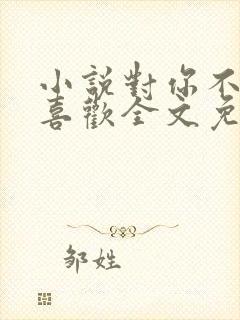 小說對你不
喜歡全文免
邹姓